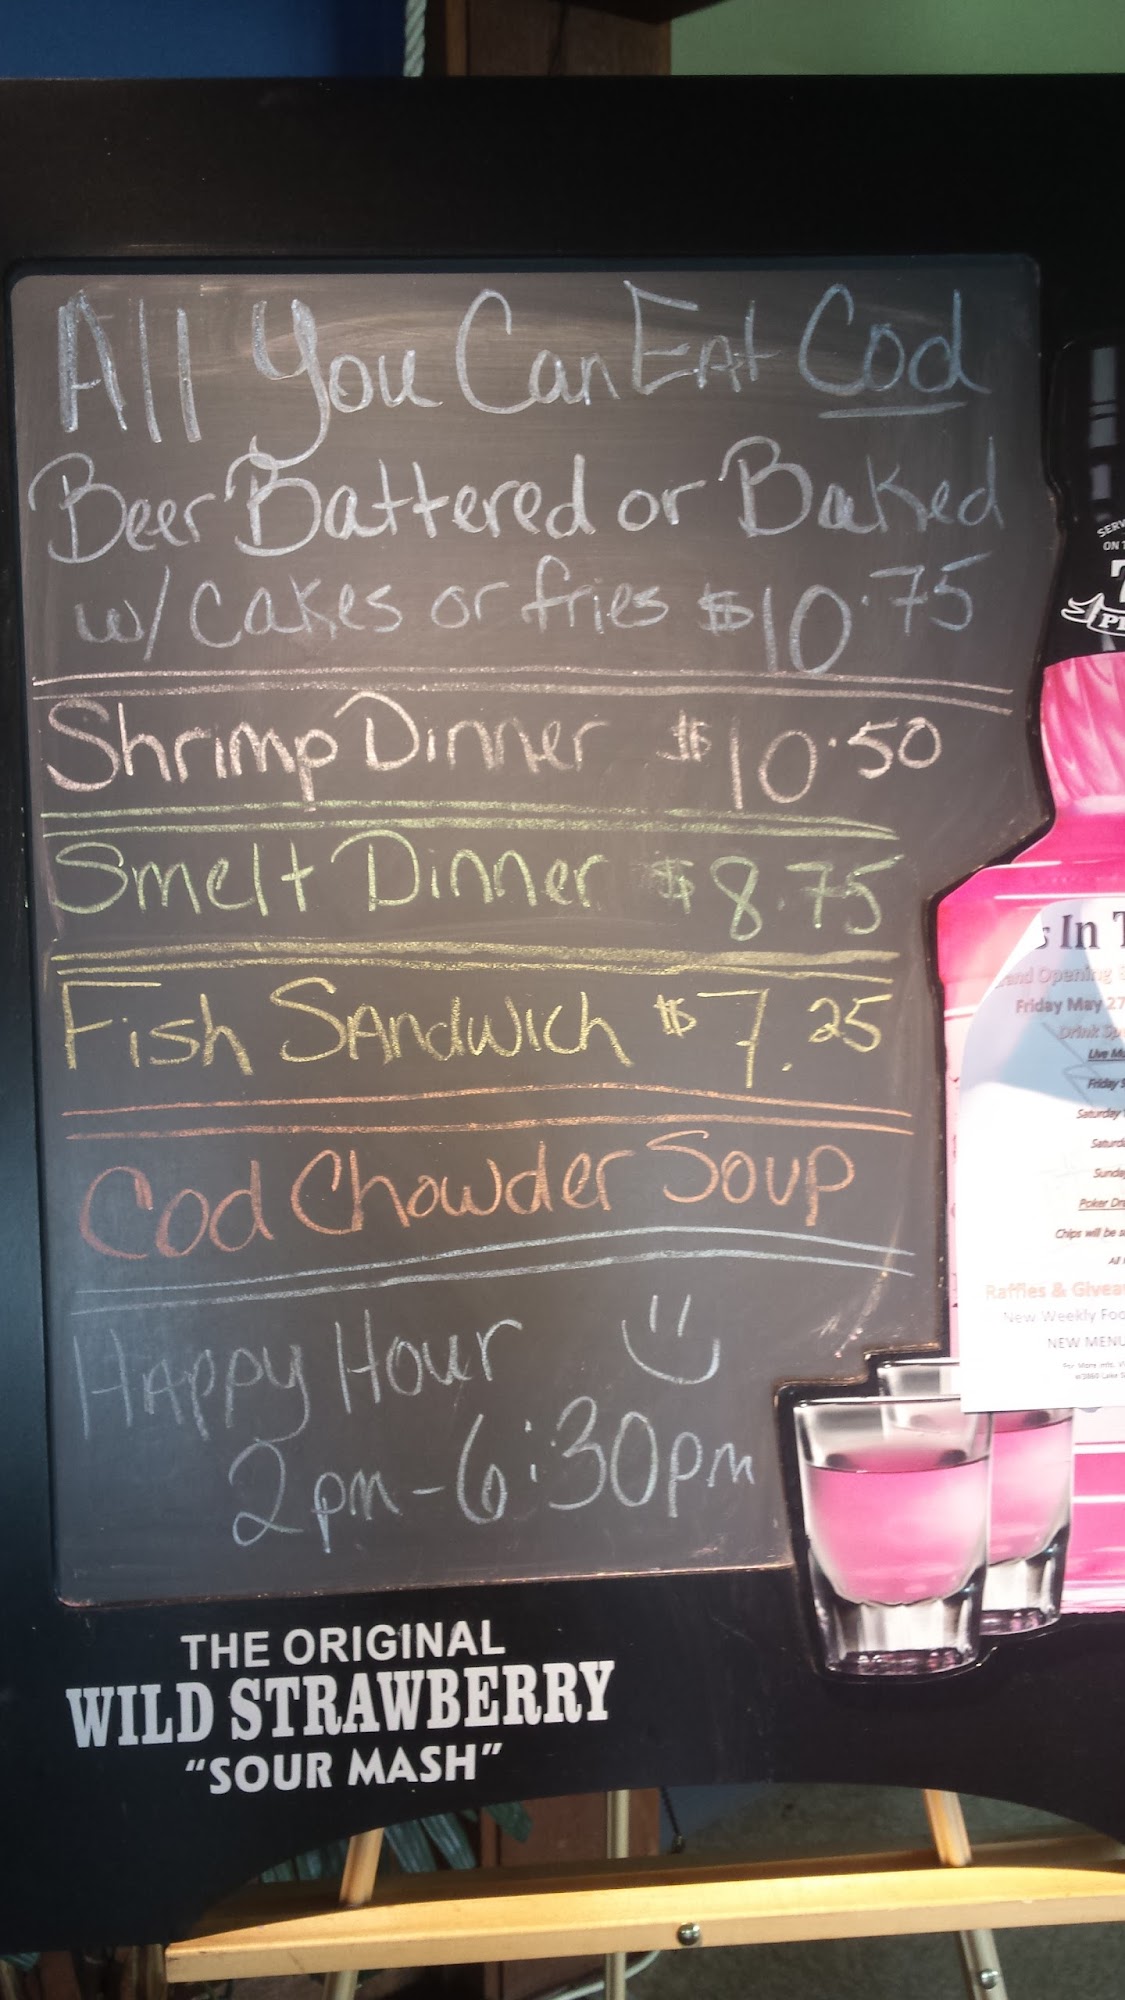 All You Can Eat Cod
Beer Battered or Baked
w/ cakes or fries $10.75
Shrimp Dinner $10.50
Smelt Dinner $8.75
Fish Sandwich $7.25
Cod Chowder Soup
Happy Hour
2pm-6:30pm
THE ORIGINAL
WILD STRAWBERRY
"SOUR MASH"
ON
In
Opening
Friday May 27
Drink
Live
Friday
Saturday
Sunday
Poker
Chips will be
All
Raffles &
New Weekly
NEW MENU
For More